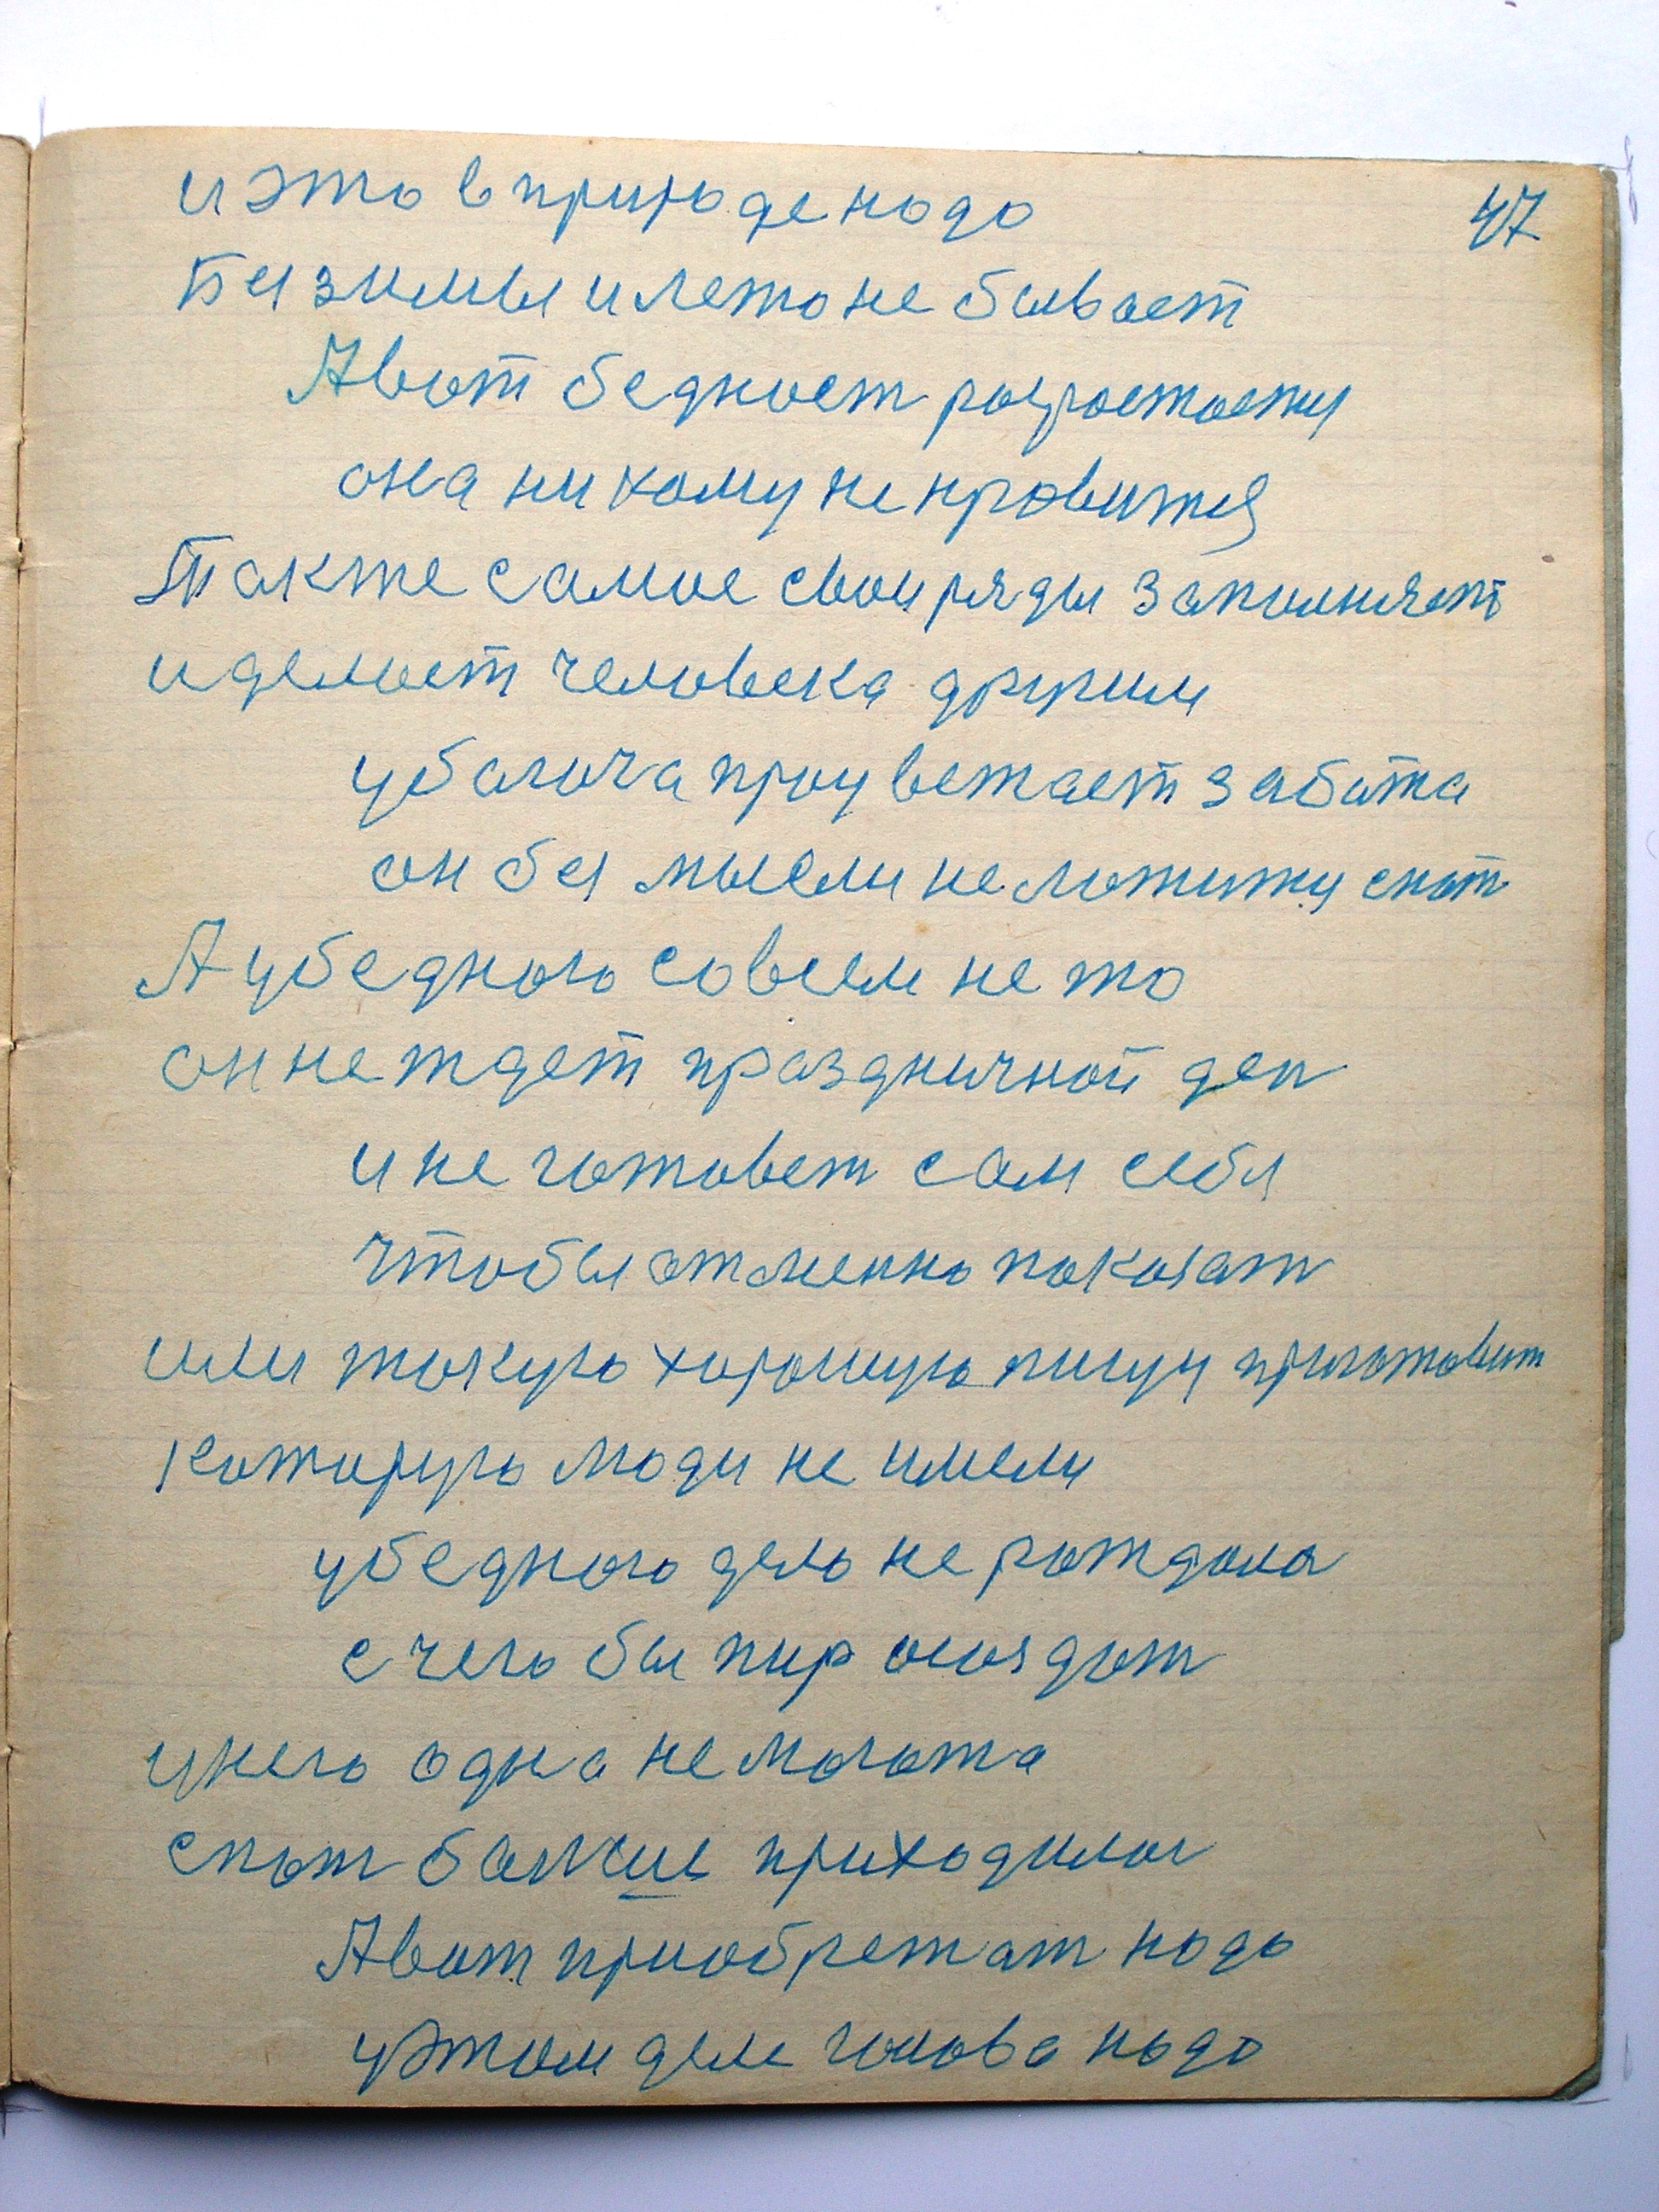 и это в природе надо 47
Без зимы и лето не бывает
А вот бедност розростается
она никому не нравится
Также самое свои ряды заполняет
и делает человека другим
у богоча процветает забота
он без мысли не ложится спат
А у бедного совсем не то
он не ждет праздничной ден
и не готовет сам себя
чтобы отменно показат
или такую хорошую пищу приготовит
которую люди не имели
у бедного дело не рождала
с чего бы пир создат
у него одна немогота
спат болше приходилос
А вот приобретат надо
у этом деле голова надо